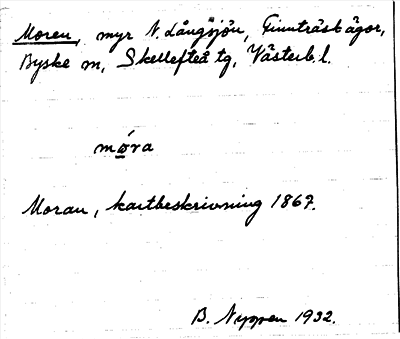 Moren, myr N. Långsjön, Finnträskägor,
Byske sn, Skellefteå tg, Västerb. l.
møra
Moran, kartbeskrivning 1867.
B. Nyppen 1932.